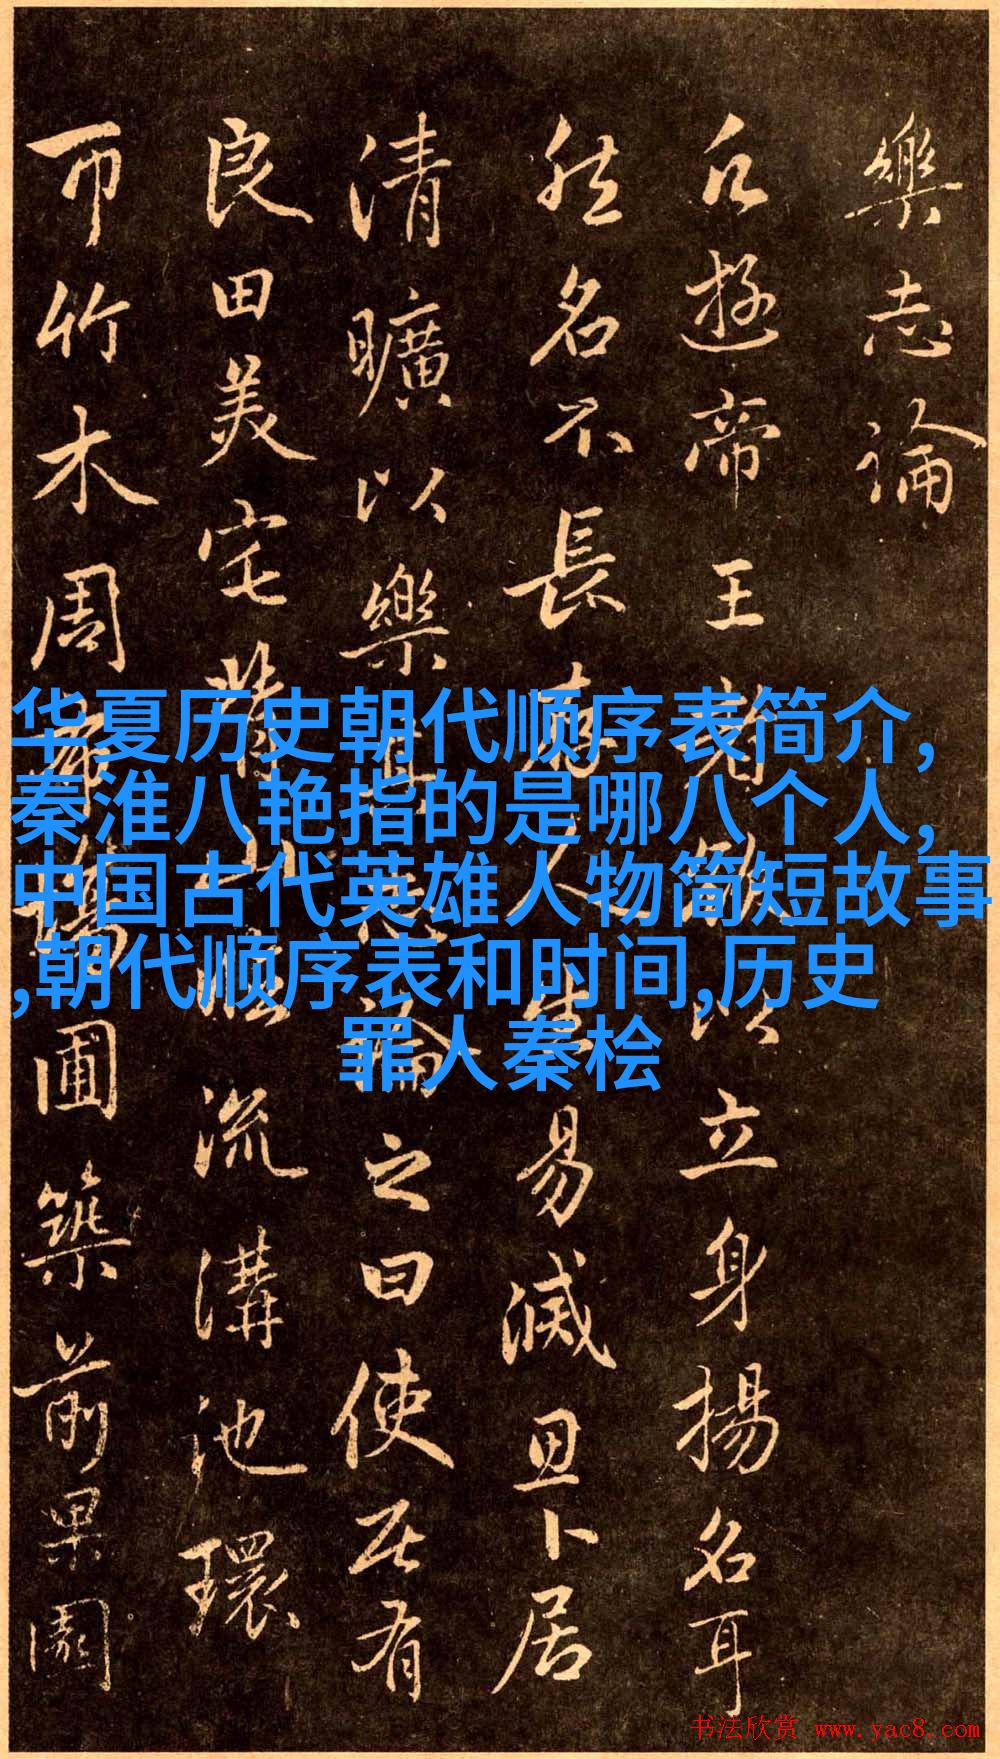 樂志論
凡遊帝王者欲以立身揚名耳
然名不長存人生易滅思卜居
清曠以樂其志論之曰使居有
良田美宅背山臨流溝池環
帀竹木周布場圃築前果園
华夏历史朝代顺序表简介,
秦淮八艳指的是哪八个人,
中国古代英雄人物简短故事
,朝代顺序表和时间,历史
罪人秦桧
书法欣赏 www.yac8.com